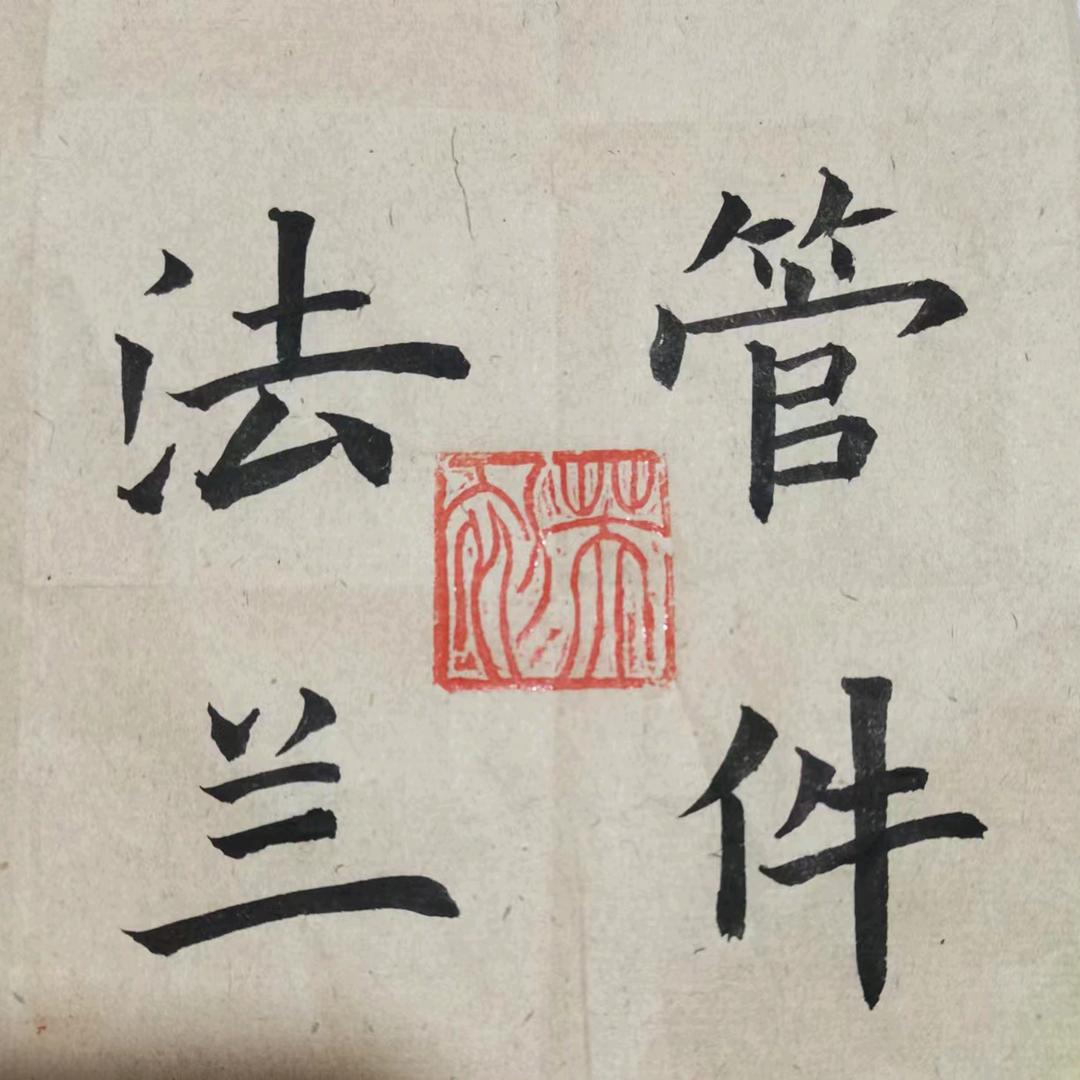 管件
法兰